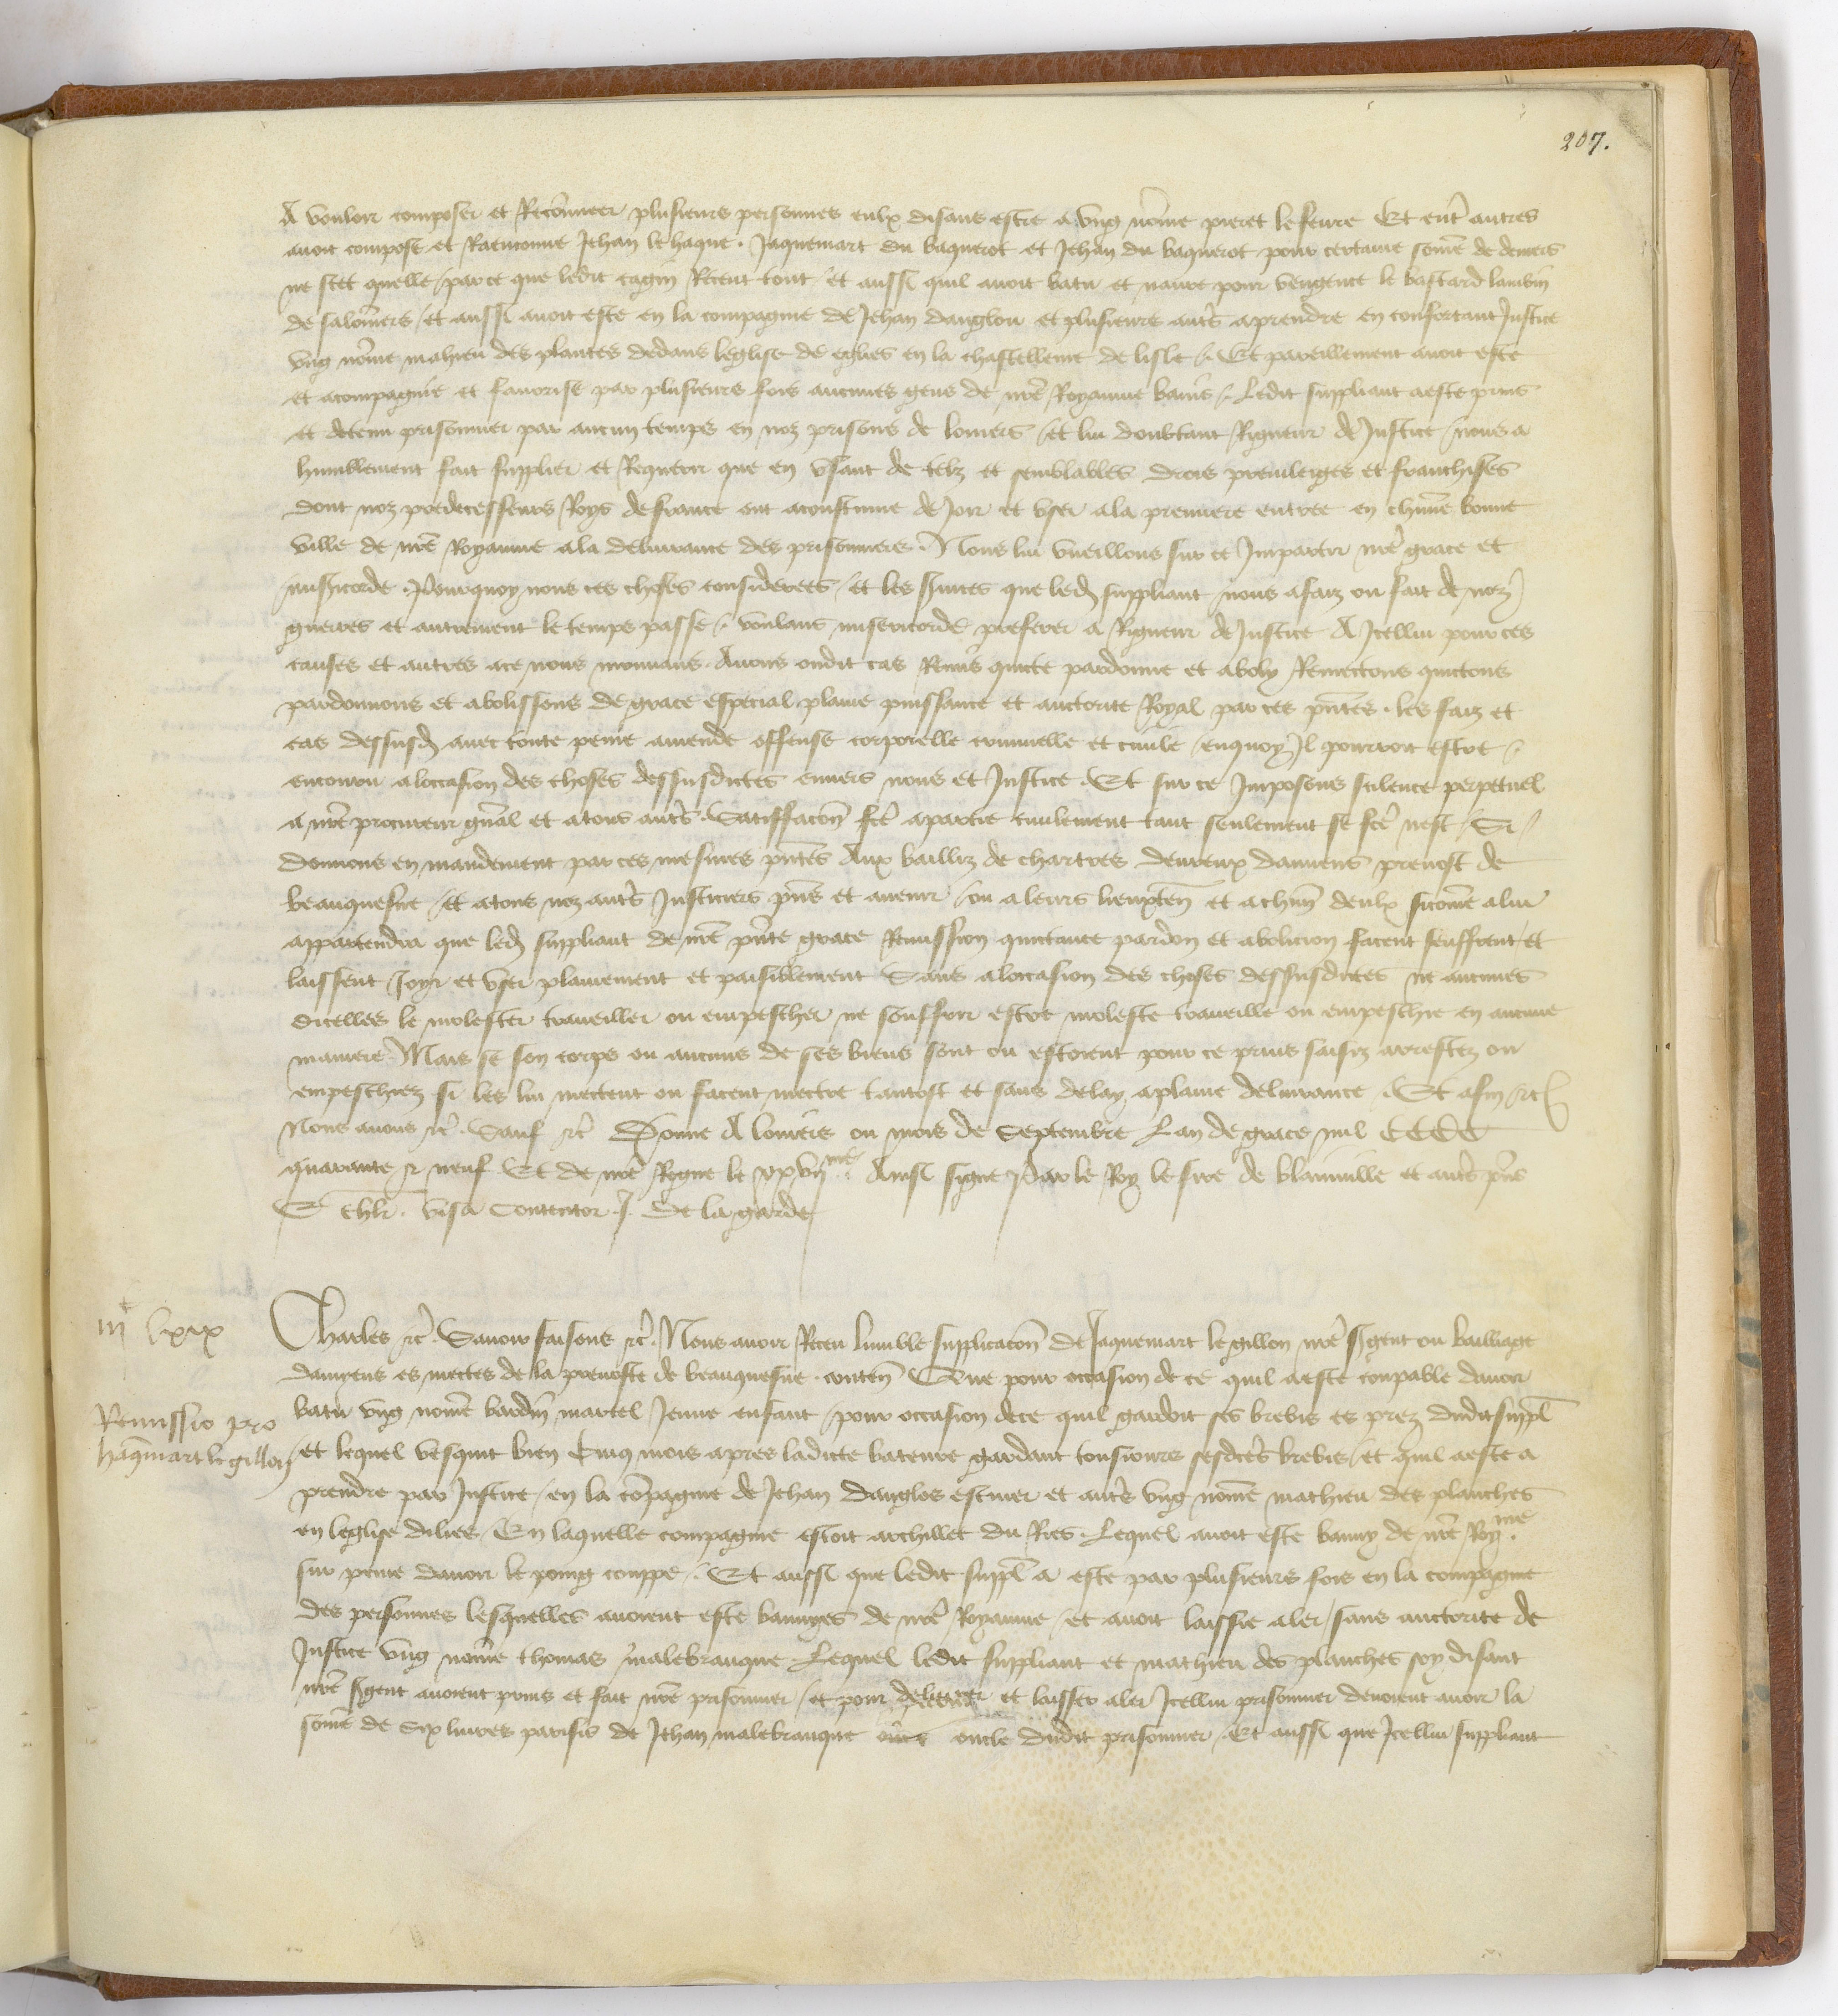 207.
A vouloir composer et Rcconnneer plusieurs personnes eulx disans estre a ung nōme pieret lefevre Et entr autres
avoit compose et Raenconne Jehan le haque . Jaquemart du baquerot et Jehan du baquerot pour certaine some de deniers
ne scet quelle / parce que ledit cagin Receut tout / et aussi quil avoit batu et navre pour vengence le bastard lambin
de salomiers / et aussi avoit este en la compaignie de Jehan danglou et plusieurs autrs aprendre en confortant Justice
ung nōme mahieu des plances dedans leglise de eglies en la chastellenie de lisle /. Et pareillement avoit este
et acompaignie et favorise par plusieurs fois aucunes gens de nre Royaume banis /. Ledit suppliant a este prins
et detenu prisonnier par aucun temps en noz prisons de loviers / et lui doubtant Rigueur de Justice / nous a
humblement fait supplier et Requerir que en usant de telz et semblables drois previleiges et franchises
dont noz predecesseurs Roys de france ont acoustume de Joir et user a la premiere entree en chune bonne
ville de nre Royaume a la delivrance des prisonniers . Nous lui vueillons sur ce Impartir nre grace et
misericorde . Pourquoy nous ces choses considerees / et les svices que led suppliant nous a faiz ou fait de noz
guerres et autrement le temps passe /. voulans misericorde preferer a Rigueur de Justice A Icellui pour ces
causes et autres ace nous mouvans . Avons oudit cas Remis quicte pardonne et aboly Remectons quictons
pardonnons et abolissons de grace especial plaine puissance et auctorite Royal par ces pntes . les faiz et
cas dessusd avec toute peine amende offense corporelle criminelle et civile / enquoy Il pourroit estre /
encouru a loccasion des choses dessusdictes envers nous et Justice . Et sur ce Imposons scilence perpetuel
a nre procureur gnal et a tous autrs . Satisffacōn fce a partie civilement tant seulement se fce nest / Si
donnons en mandement par ces mesmes pntes Aux bailliz de chartres devreux damiens prevost de
beauquesne / et a tous noz autrs Justiciers pns et avenir / ou a leurs lieuxten et a chun deulx sicome a lui
appartendra que led suppliant de nre pnte grace Remission quictance pardon et abolicion facent seuffrent et
laissent Joyr et user plainement et paisiblement Sans a loccasion des choses dessusdictes ne aucunes
dicelles le molester traveiller ou empescher ne souffrir estre moleste traveille ou empeschie en aucune
maniere . Mais se son corps ou aucuns de ses biens sont ou estoient pour ce prins saisiz arrestez ou
empeschiez si les lui mectent ou facent mectre tantost et sans delay a plaine delivrance . Et afin etc
Nous avons etc . Sauf etc Donne A loviers ou mois de Septembre Lan de grace mil CCCC
quarante et neuf Et de nre Regne le xxvij me Ainsi signe Par le Roy le sire de blainville et autrs pns
E Chlr . Visa Contentor . J . De la garde
iij c lxix
Charles etc . Savoir faisons etc . Nous avoir Receu lumble supplicacōn de Jaquemart le gillon nre sgent ou bailliage
damyens es mectes de la prevoste de beauquesne . conten Que pour occasion de ce quil a este coupable davoir
Remissio pro
haqmart le gillon
batu ung nome bardin martel Jeune enfant / pour occasion de ce quil gardoit ses brebis es prez dudit suppl
et lequel vesquit bien Cinq mois apres ladicte bateure gardant tousiours sesdctes brebis / et quil a este a
prendre par Justice / en la cōpagnie de Jehan danglos escuier et autrs ung nome mathieu des planches
en leglise dilies / En laquelle compagnie estoit archillet du Ries . Lequel avoit este banny de nre Roy me
sur peine davoir le poing couppe /. Et aussi que ledit suppl a este par plusieurs fois en la compagnie
des personnes lesquelles avoient este bannyes de nre Royaume / et avoit laissie aler / sans auctorite de
Justice ung nōme thomas malebranque . Lequel ledit suppliant et mathieu des planches soy disant
nre sgent avoient prins et fait nre prisonnier / et pour delivrer et laisser aler Icellui prisonnier devoient avoir la
some de Six livres parisis de Jehan malebranque oncle dudit prisonnier /. Et aussi que Icellui suppliant